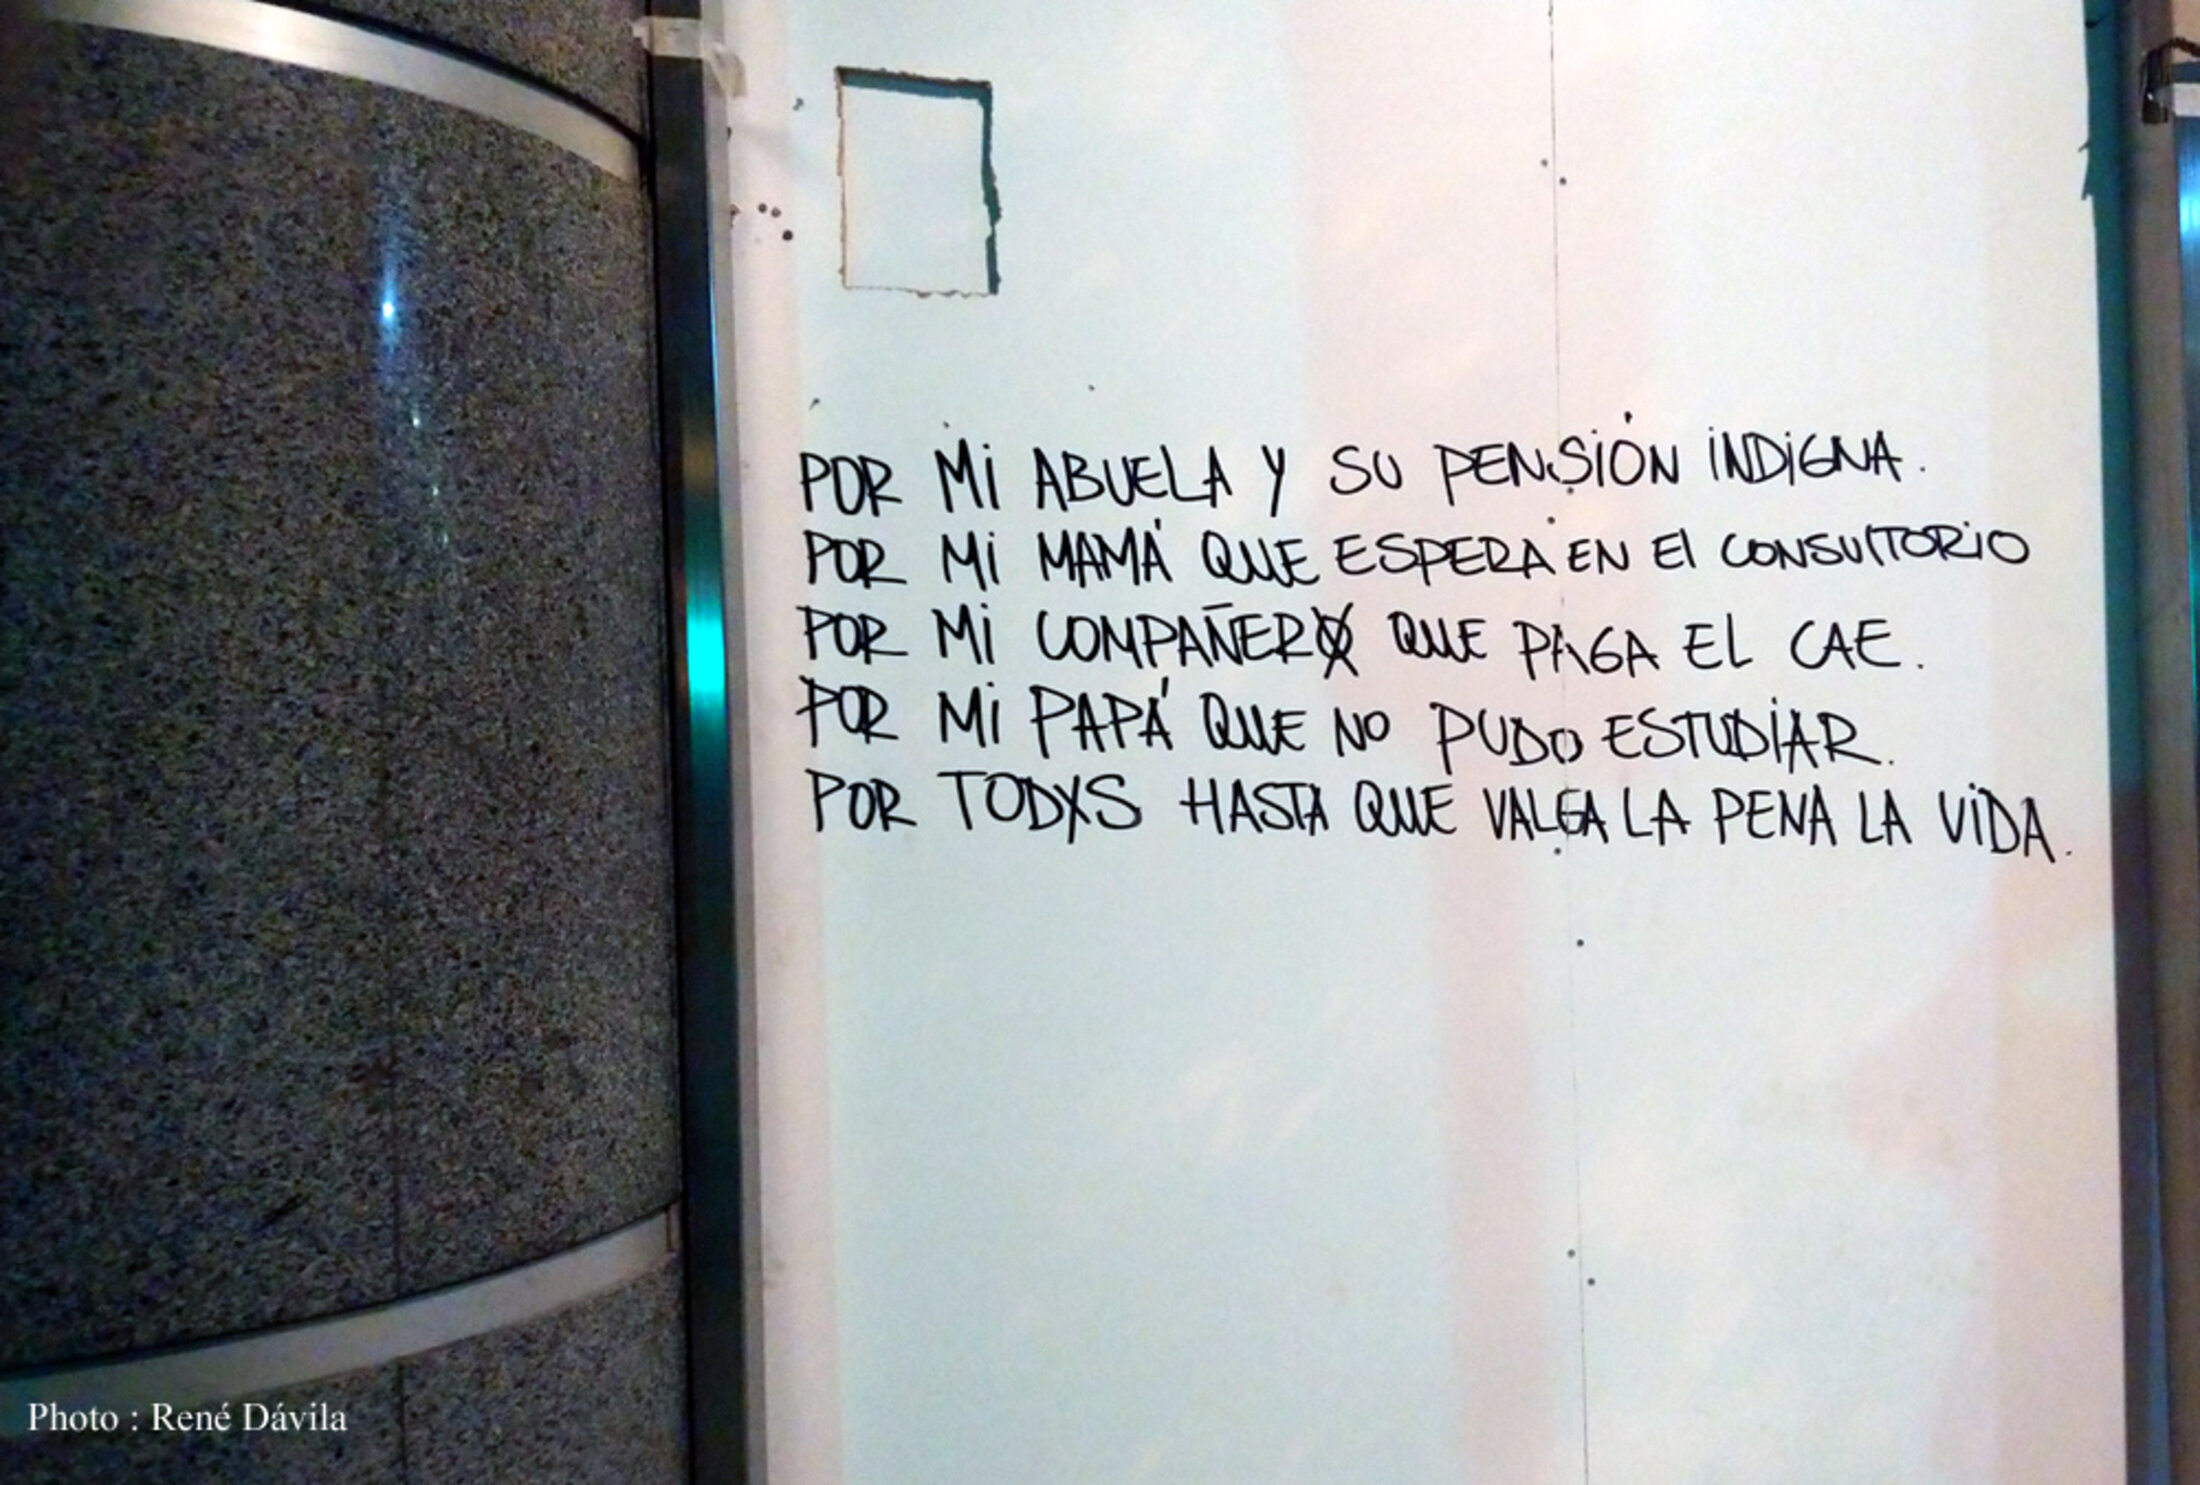 POR Mi ABUELA Y SU PENSIÓN INDIGNA.
POR Mi MAMÁ QUE ESPERA EN El CONSUlTORIO
POR Mi COMPAÑERX QUE PAGA EL CAE.
POR Mi PAPÁ QUE NO PUDO ESTUDIAR.
POR TODXS HASTA QUE VALGA LA PENA LA VIDA.
Photo : René Dávila